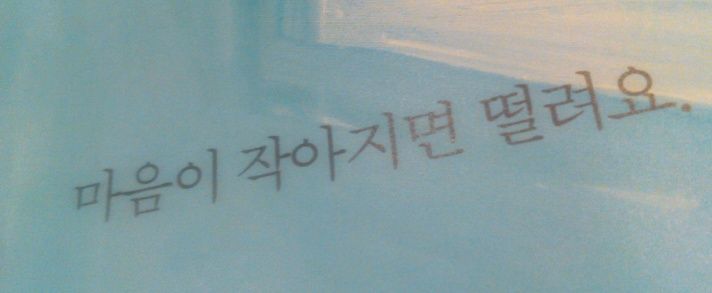 마음이 작아지면 떨려요.